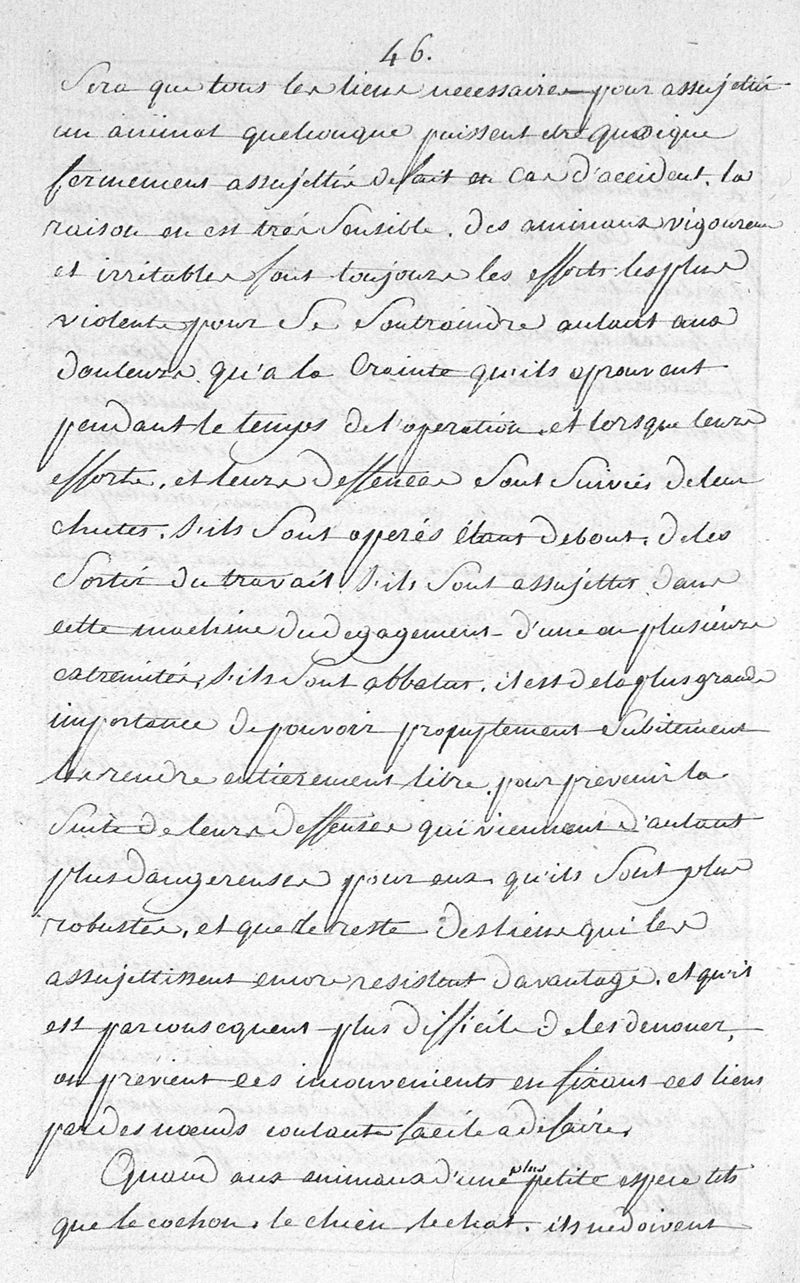 46.
Sera que tous les liens necessaires pour assujettir
un animal quelconque puissent etre quoique
fermement assujettis defait en cas d'accident. la
raison en est tres sensible. des aminaux vigoureux
et irritables font toujours les efforts les plus
violents pour se soutraindre autant aux
douleurs qu'a la crainte qu'ils eprouvent
pendant le temps de l'operation. et lorsque leurs
efforts, et leurs deffences sont suivies de leur
chutes. s'ils sont operés étant debout. de les
sortir du travail s'ils sont assujettis dans
cette machine du degagement d'une ou plusieurs
extremités, s'ils sont abbatus. il est de la plus grande
importance de pouvoir promptement subitement
les rendre entierement libre. pour prevenir la
suite de leurs deffenses qui viennent d'autant
plus dangereuses pour eux, qu'ils sont plus
robustes, et que le reste des liens qui les
assujettissent encore resistent davantage. et qu'il
est par consequent plus difficile de les denouer,
on prévient ces inconvenients en fixant ces liens
par des nœuds coulants facile a defaire,
Quand aux animaux d'une plus petite espece tels
que le cochon, le chien, le chat. ils ne doivent